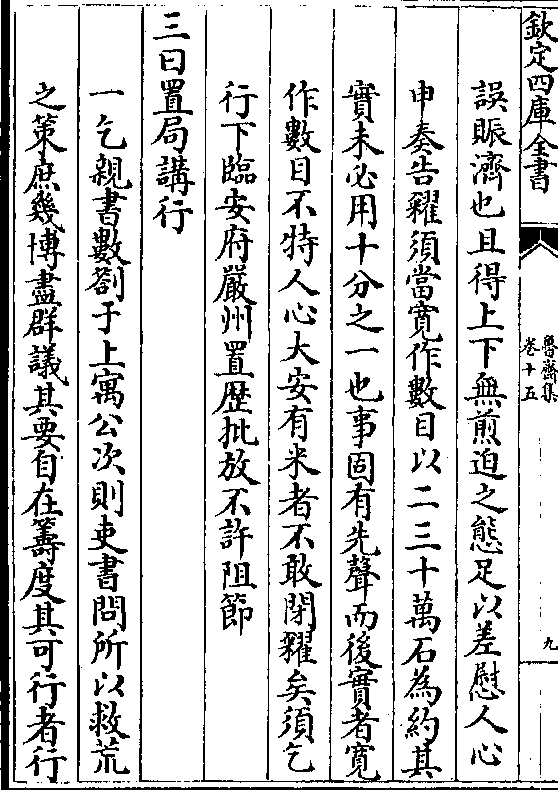 欽定四庫全書
魯齋集
卷十五
九
誤賑濟也且得上下無煎迫之態足以差慰人心
申奏告糴須當寛作數目以二三十萬石為約其
實未必用十分之一也事固有先聲而後實者寛
作數目不特人心大安有米者不敢閉糴矣須乞
行下臨安府嚴州置歴批放不許阻節
三曰置局講行
一乞親書數劄于上寓公次則吏書問所以救荒
之策庶幾博盡群議其要自在籌度其可行者行